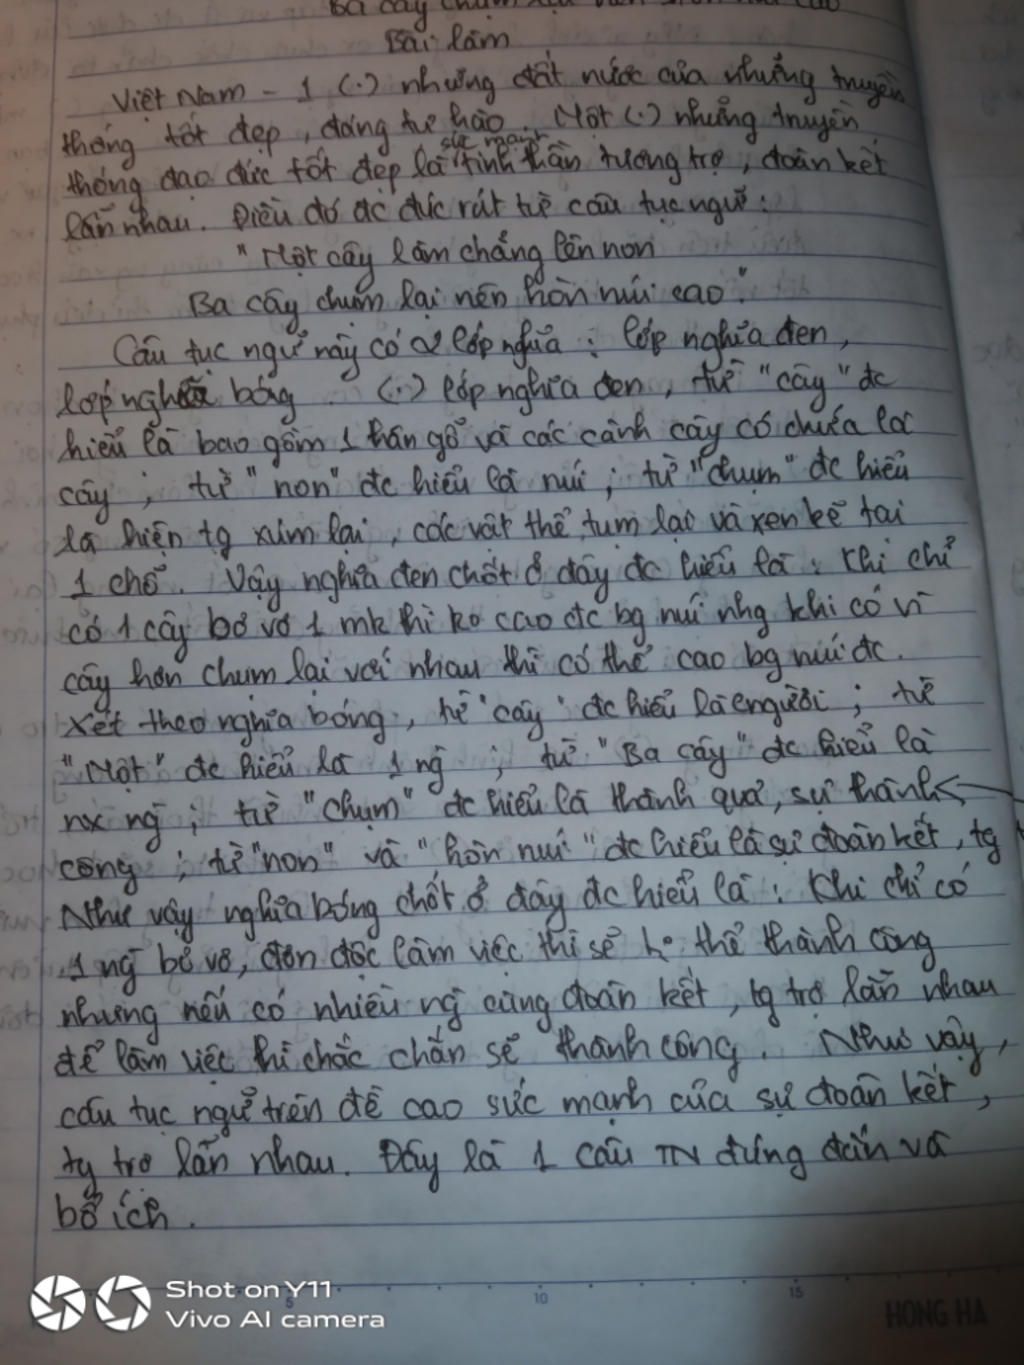 Ba cây chụm lại nên hòn núi cao
Bài làm
Việt Nam - 1 (.) những đất nước của những truyền
thống tốt đẹp, đáng tự hào. Một (.) những truyền
sức mạnh
thống đạo đức tốt đẹp là tinh thần tương trợ, đoàn kết
lẫn nhau. Điều đó đc đúc rút từ câu tục ngữ :
" Một cây làm chẳng lên non
Ba cây chụm lại nên hòn núi cao".
Câu tục ngữ này có 2 lớp nghĩa : lớp nghĩa đen,
lớp nghĩa bóng. (.) lớp nghĩa đen, từ "cây" đc
hiểu là bao gồm 1 thân gỗ và các cành cây có chứa lá
cây ; từ "non" đc hiểu là núi ; từ "chụm" đc hiểu
là hiện tg xúm lại, các vật thể tụm lại và xen kẽ tại
1 chỗ. Vậy nghĩa đen chốt ở đây đc hiểu là : Khi chỉ
có 1 cây bơ vơ 1 mk thì ko cao đc bg núi nhg khi có
cây hơn chụm lại với nhau thì có thể cao bg núi đc.
Xét theo nghĩa bóng, từ "cây" đc hiểu là người ; từ
"Một" đc hiểu là 1 ng ; từ "Ba cây" đc hiểu là
nx ng ; từ "chụm" đc hiểu là thành quả, sự thành
công ; từ "non" và "hòn núi" đc hiểu là sự đoàn kết, tg
Như vậy nghĩa bóng chốt ở đây đc hiểu là : Khi chỉ có
1 ng bơ vơ, đơn độc làm việc thì sẽ ko thể thành công
nhưng nếu có nhiều ng cùng đoàn kết, tg trợ lẫn nhau
để làm việc thì chắc chắn sẽ thành công. Như vậy,
câu tục ngữ trên đề cao sức mạnh của sự đoàn kết,
tg trợ lẫn nhau. Đây là 1 câu TN đúng đắn và
bổ ích.
5
10
15
HONG HA
Shot on Y11
Vivo AI camera